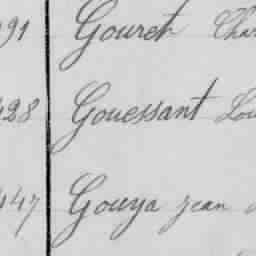 91 Gouret Char
428 Gouessant Lou
447 Gouya jean